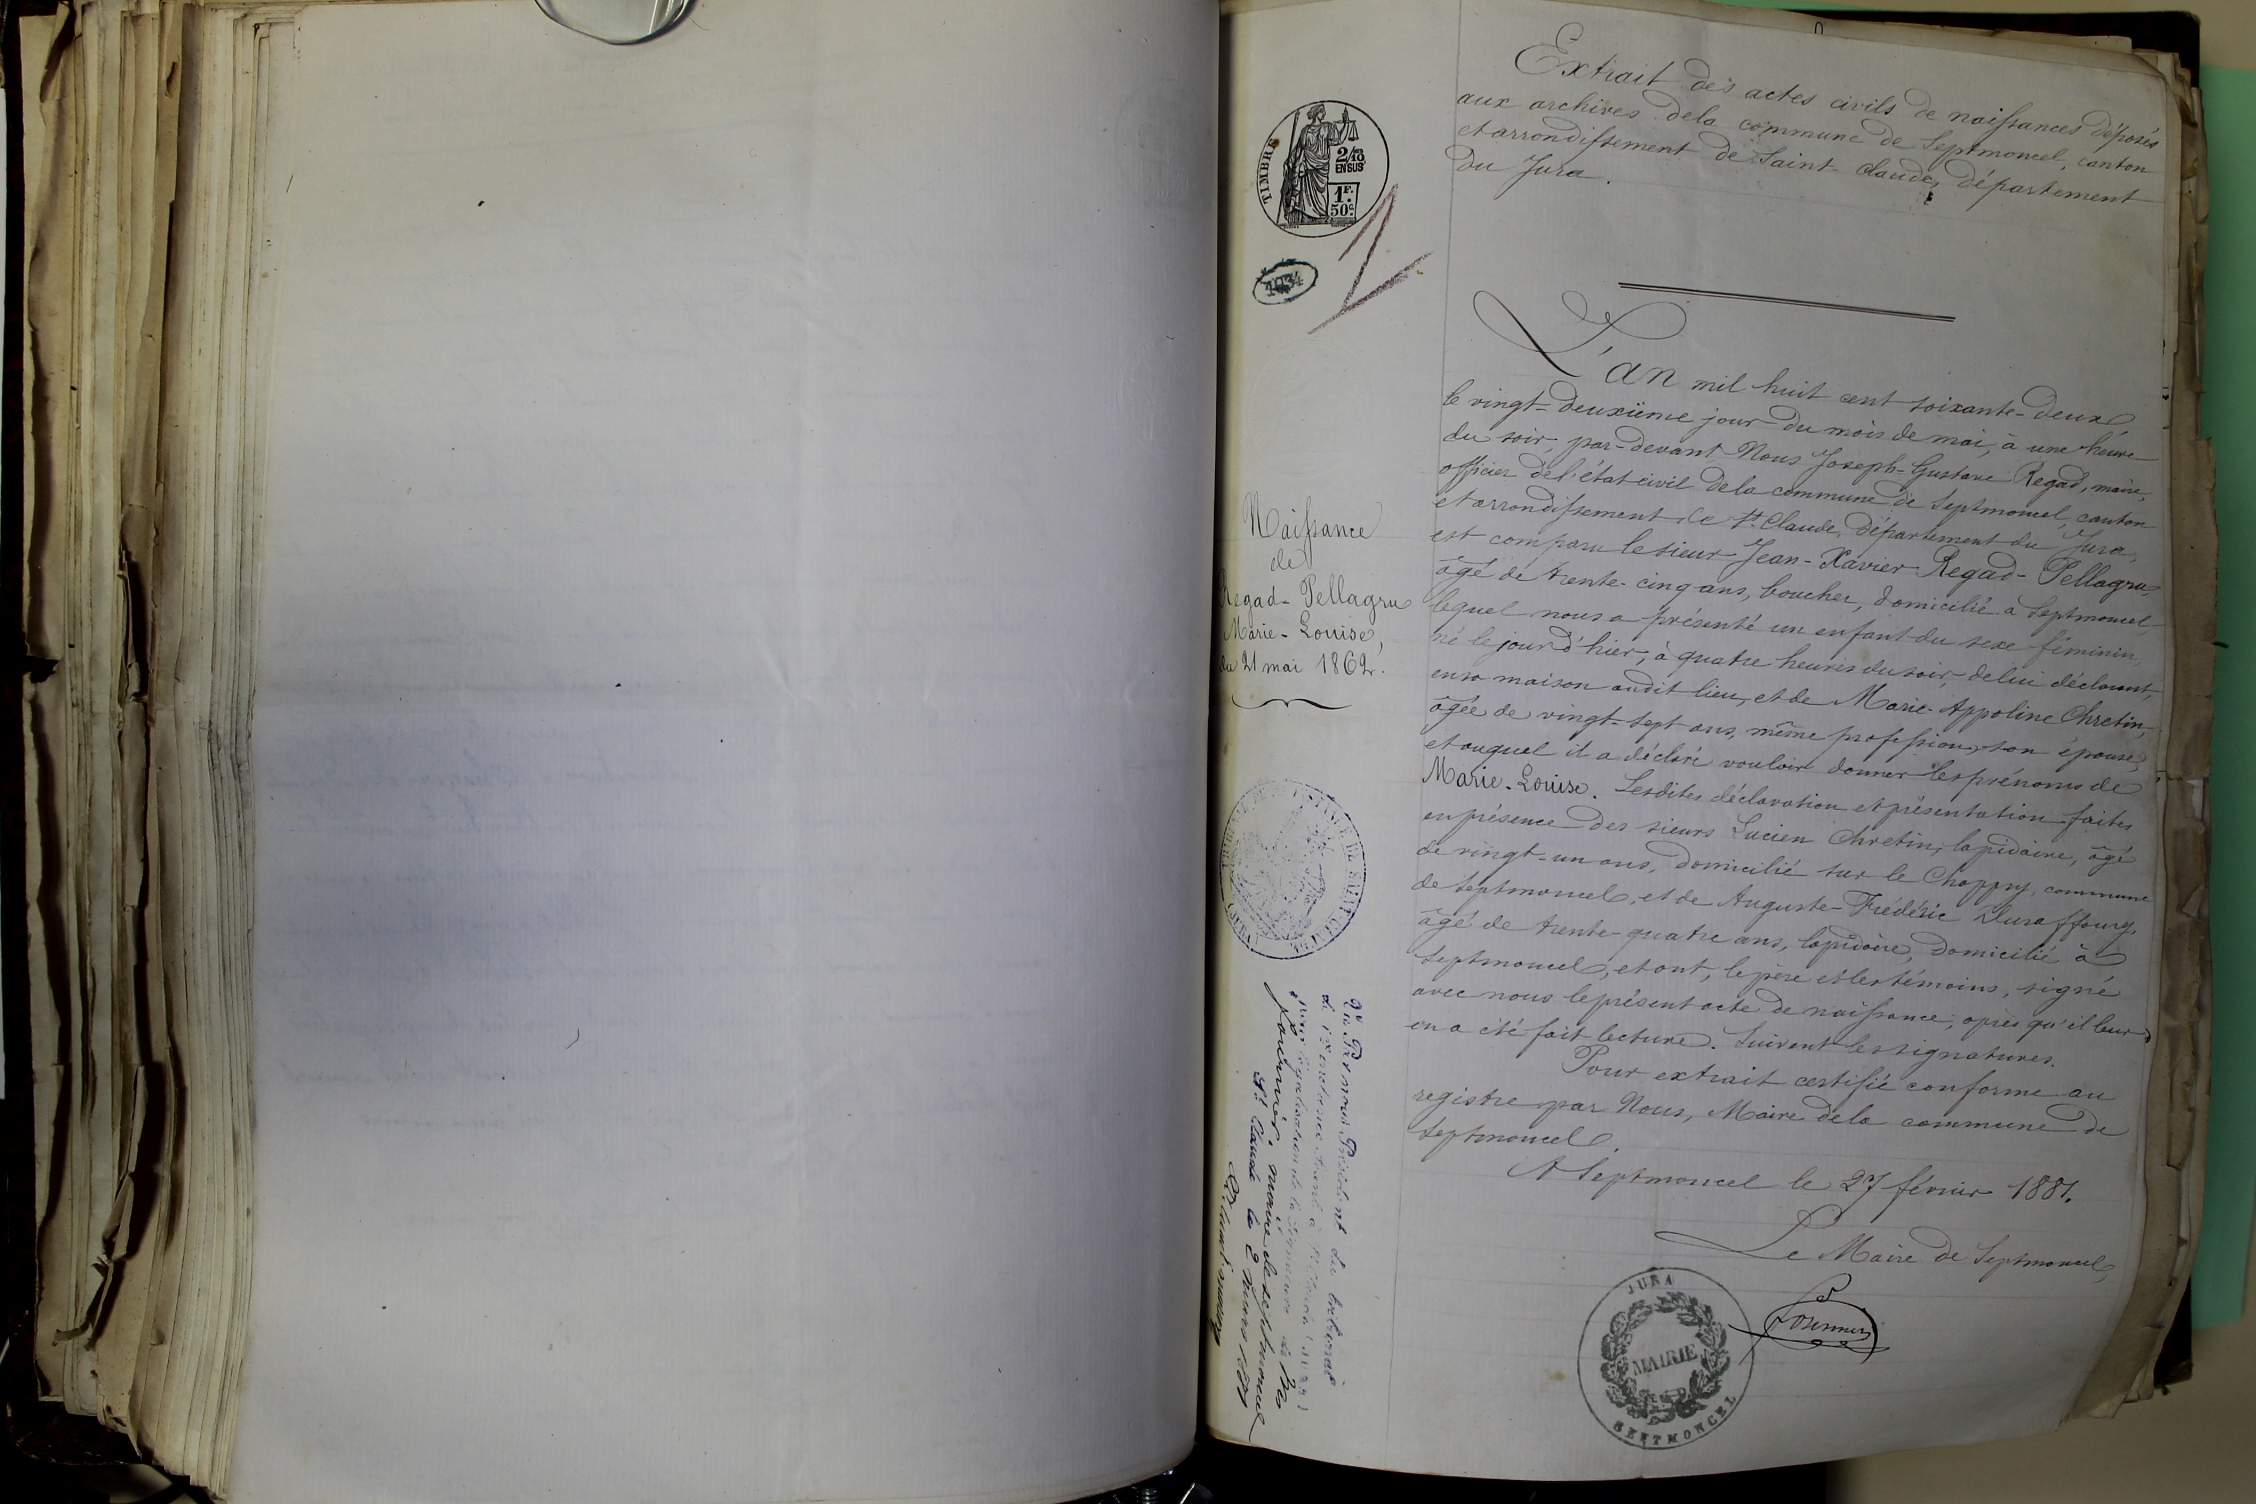 Extrait des actes civils de naissances déposés
aux archives de la commune de Septmoncel, canton
et arrondissement de Saint-Claude, département
du Jura.
TIMBRE
2/10
EN SUS
1F.
50c.
1934
L'an mil huit cent soixante-deux,
le vingt-deuxième jour du mois de mai, à une heure
du soir, par-devant Nous Joseph-Gustave Regad, maire,
officier de l'état civil de la commune de Septmoncel, canton
et arrondissement de St. Claude, département du Jura,
est comparu le sieur Jean-Xavier Regad-Pellagru,
âgé de trente-cinq ans, boucher, domicilié à Septmoncel,
lequel nous a présenté un enfant du sexe féminin,
né le jour d'hier, à quatre heures du soir, de lui déclarant,
en sa maison audit lieu, et de Marie-Appoline Chretin,
âgée de vingt-sept ans, même profession, son épouse,
et auquel il a déclaré vouloir donner les prénoms de
Marie-Louise. Lesdites déclaration et présentation faites
en présence des sieurs Lucien Chretin, lapidaire, âgé
de vingt-un ans, domicilié sur le Chappry, commune
de Septmoncel, et de Auguste-Frédéric Duraffourg,
âgé de trente-quatre ans, lapidaire, domicilié à
Septmoncel, et ont, le père et les témoins, signé
avec nous le présent acte de naissance, après qu'il leur
en a été fait lecture. Suivent les signatures.
Pour extrait certifié conforme au
registre par Nous, Maire de la commune de
Septmoncel.
A Septmoncel le 27 février 1881.
Le Maire de Septmoncel,
JURA
MAIRIE
SEPTMONCEL
Naissance
de
Regad-Pellagru
Marie-Louise,
du 21 mai 1862.
Vu Par nous Président du tribunal
de 1re instance séant à St Claude (Jura)
pour légalisation de la signature de Mr
maire de septmoncel
St Claude le 2 mars 1881